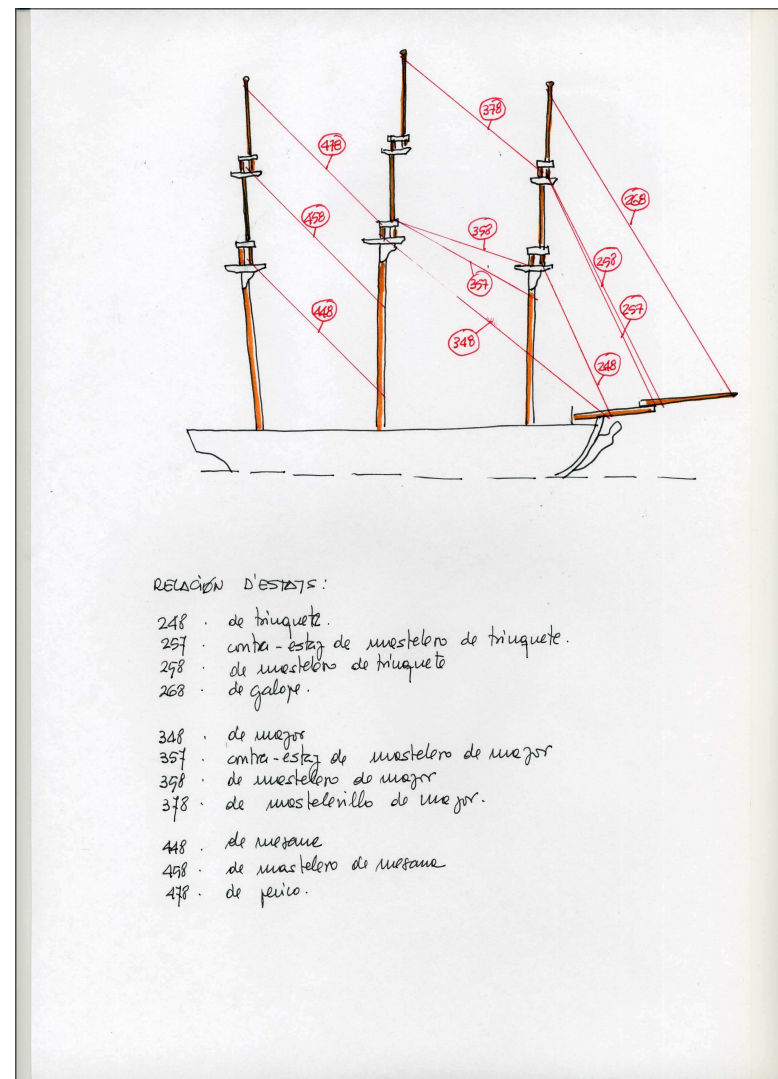 378
478
268
458
358
258
357
257
448
348
248
RELACIÓN D'ESTAYS:
248 . de trinquete.
257 . contra-estay de mastelero de trinquete.
258 . de mastelero de trinquete
268 . de galope.
348 . de mayor
357 . contra-estay de mastelero de mayor
358 . de mastelero de mayor
378 . de mastelerillo de mayor.
448 . de mesana
458 . de mastelero de mesana
478 . de perico.